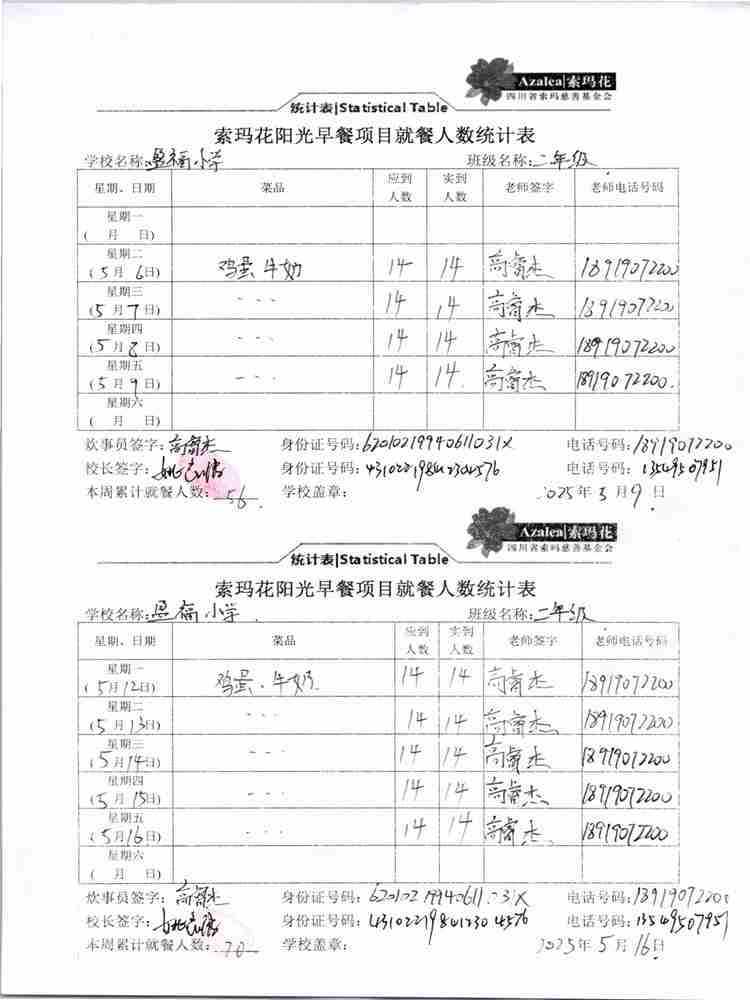 Azalea|索玛花
四川省索玛慈善基金会
统计表|Statistical Table
索玛花阳光早餐项目就餐人数统计表
学校名称: 盈福小学 班级名称: 二年级
星期、日期 菜品 应到人数 实到人数 老师签字 老师电话号码
星期一 ( 月 日)
星期二 (5月 6日) 鸡蛋 牛奶 14 14 高睿杰 18919072200
星期三 (5月7日) - - - 14 14 高睿杰 18919072200
星期四 (5月8日) - - - 14 14 高睿杰 18919072200
星期五 (5月9日) - - - 14 14. 高睿杰 18919072200.
星期六 ( 月 日)
炊事员签字: 高睿杰 身份证号码: 62010219940611031X 电话号码: 18919072200
校长签字: 身份证号码: 电话号码: 13549507951
本周累计就餐人数: 56. 学校盖章: 2025年5月9日
Azalea|索玛花
四川省索玛慈善基金会
统计表|Statistical Table
索玛花阳光早餐项目就餐人数统计表
学校名称: 盈福小学 班级名称: 二年级
星期、日期 菜品 应到人数 实到人数 老师签字 老师电话号码
星期一 (5月12日) 鸡蛋、牛奶. 14 14 高睿杰 18919072200
星期二 (5月13日) - - - 14 14 高睿杰 18919072200
星期三 (5月14日) - - - 14 14 高睿杰 18919072200
星期四 (5月15日) - - - 14 14 高睿杰. 18919072200
星期五 (5月16日) - - - 14 14 高睿杰. 18919072200
星期六 ( 月 日)
炊事员签字: 高睿杰 身份证号码: 62010219940611031X 电话号码: 18919072200
校长签字: 身份证号码: 电话号码: 13549507951
本周累计就餐人数: 70 学校盖章: 2025年5月16日